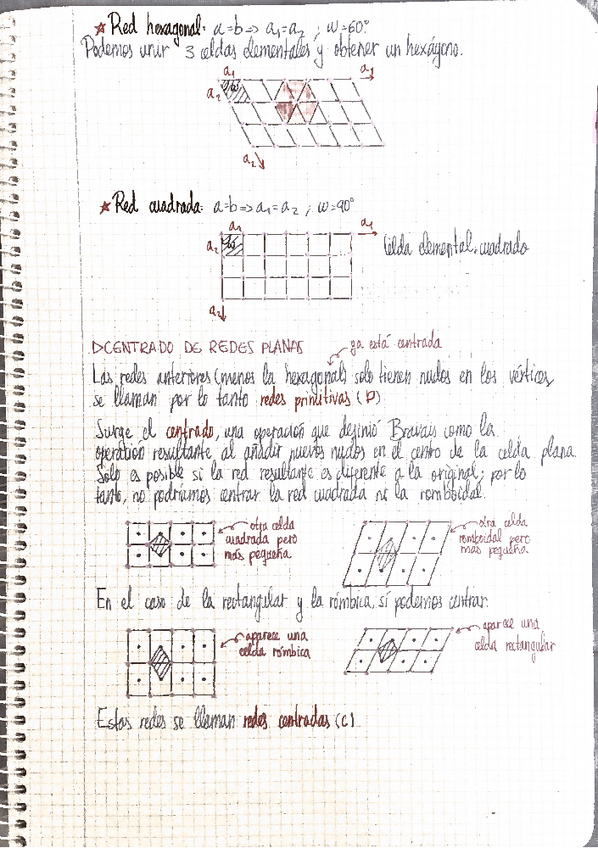 ★ Red hexagonal: a=b => a₁=a₂ ; ω=60°
Podemos unir 3 celdas elementales y obtener un hexágono.
a₁
a₁
a₂
ω
a₂
★ Red cuadrada: a=b => a₁=a₂ ; ω=90°
a₁
a₁
a₂
ω
Celda elemental, cuadrado
a₂
▷CENTRADO DE REDES PLANAS
ya está centrada
Las redes anteriores (menos la hexagonal) solo tienen nudos en los vértices,
se llaman por lo tanto redes primitivas (p)
Surge el centrado, una operación que definió Bravais como la
operación resultante al añadir nuevos nudos en el centro de la celda plana.
Solo es posible si la red resultante es diferente a la original; por lo
tanto, no podríamos centrar la red cuadrada ni la romboidal.
otra celda
cuadrada pero
más pequeña
otra celda
romboidal pero
más pequeña
En el caso de la rectangular y la rómbica, sí podemos centrar.
aparece una
celda rómbica
aparece una
celda rectangular
Estas redes se llaman redes centradas (c)